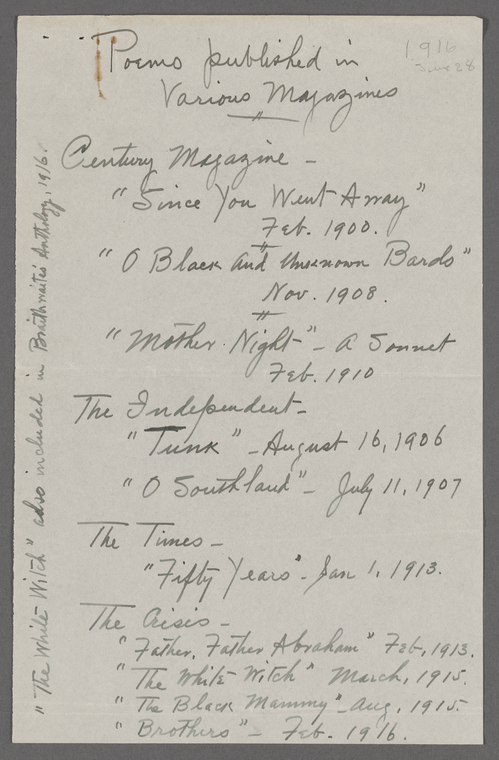 Poems published in
Various Magazines
1916
June 28
Century Magazine –
"Since You Went Away"
Feb. 1900.
"O Black and Unknown Bards"
Nov. 1908.
"Mother Night" – A Sonnet
Feb. 1910
The Independent –
"Tunk" – August 16, 1906
"O Southland" – July 11, 1907
The Times –
"Fifty Years" – Jan 1, 1913.
The Crisis –
"Father, Father Abraham" Feb, 1913.
"The White Witch" March, 1915.
"The Black Mammy" – Aug, 1915.
"Brothers" – Feb. 1916.
"The White Witch" also included in Braithwaite's Anthology, 1916.